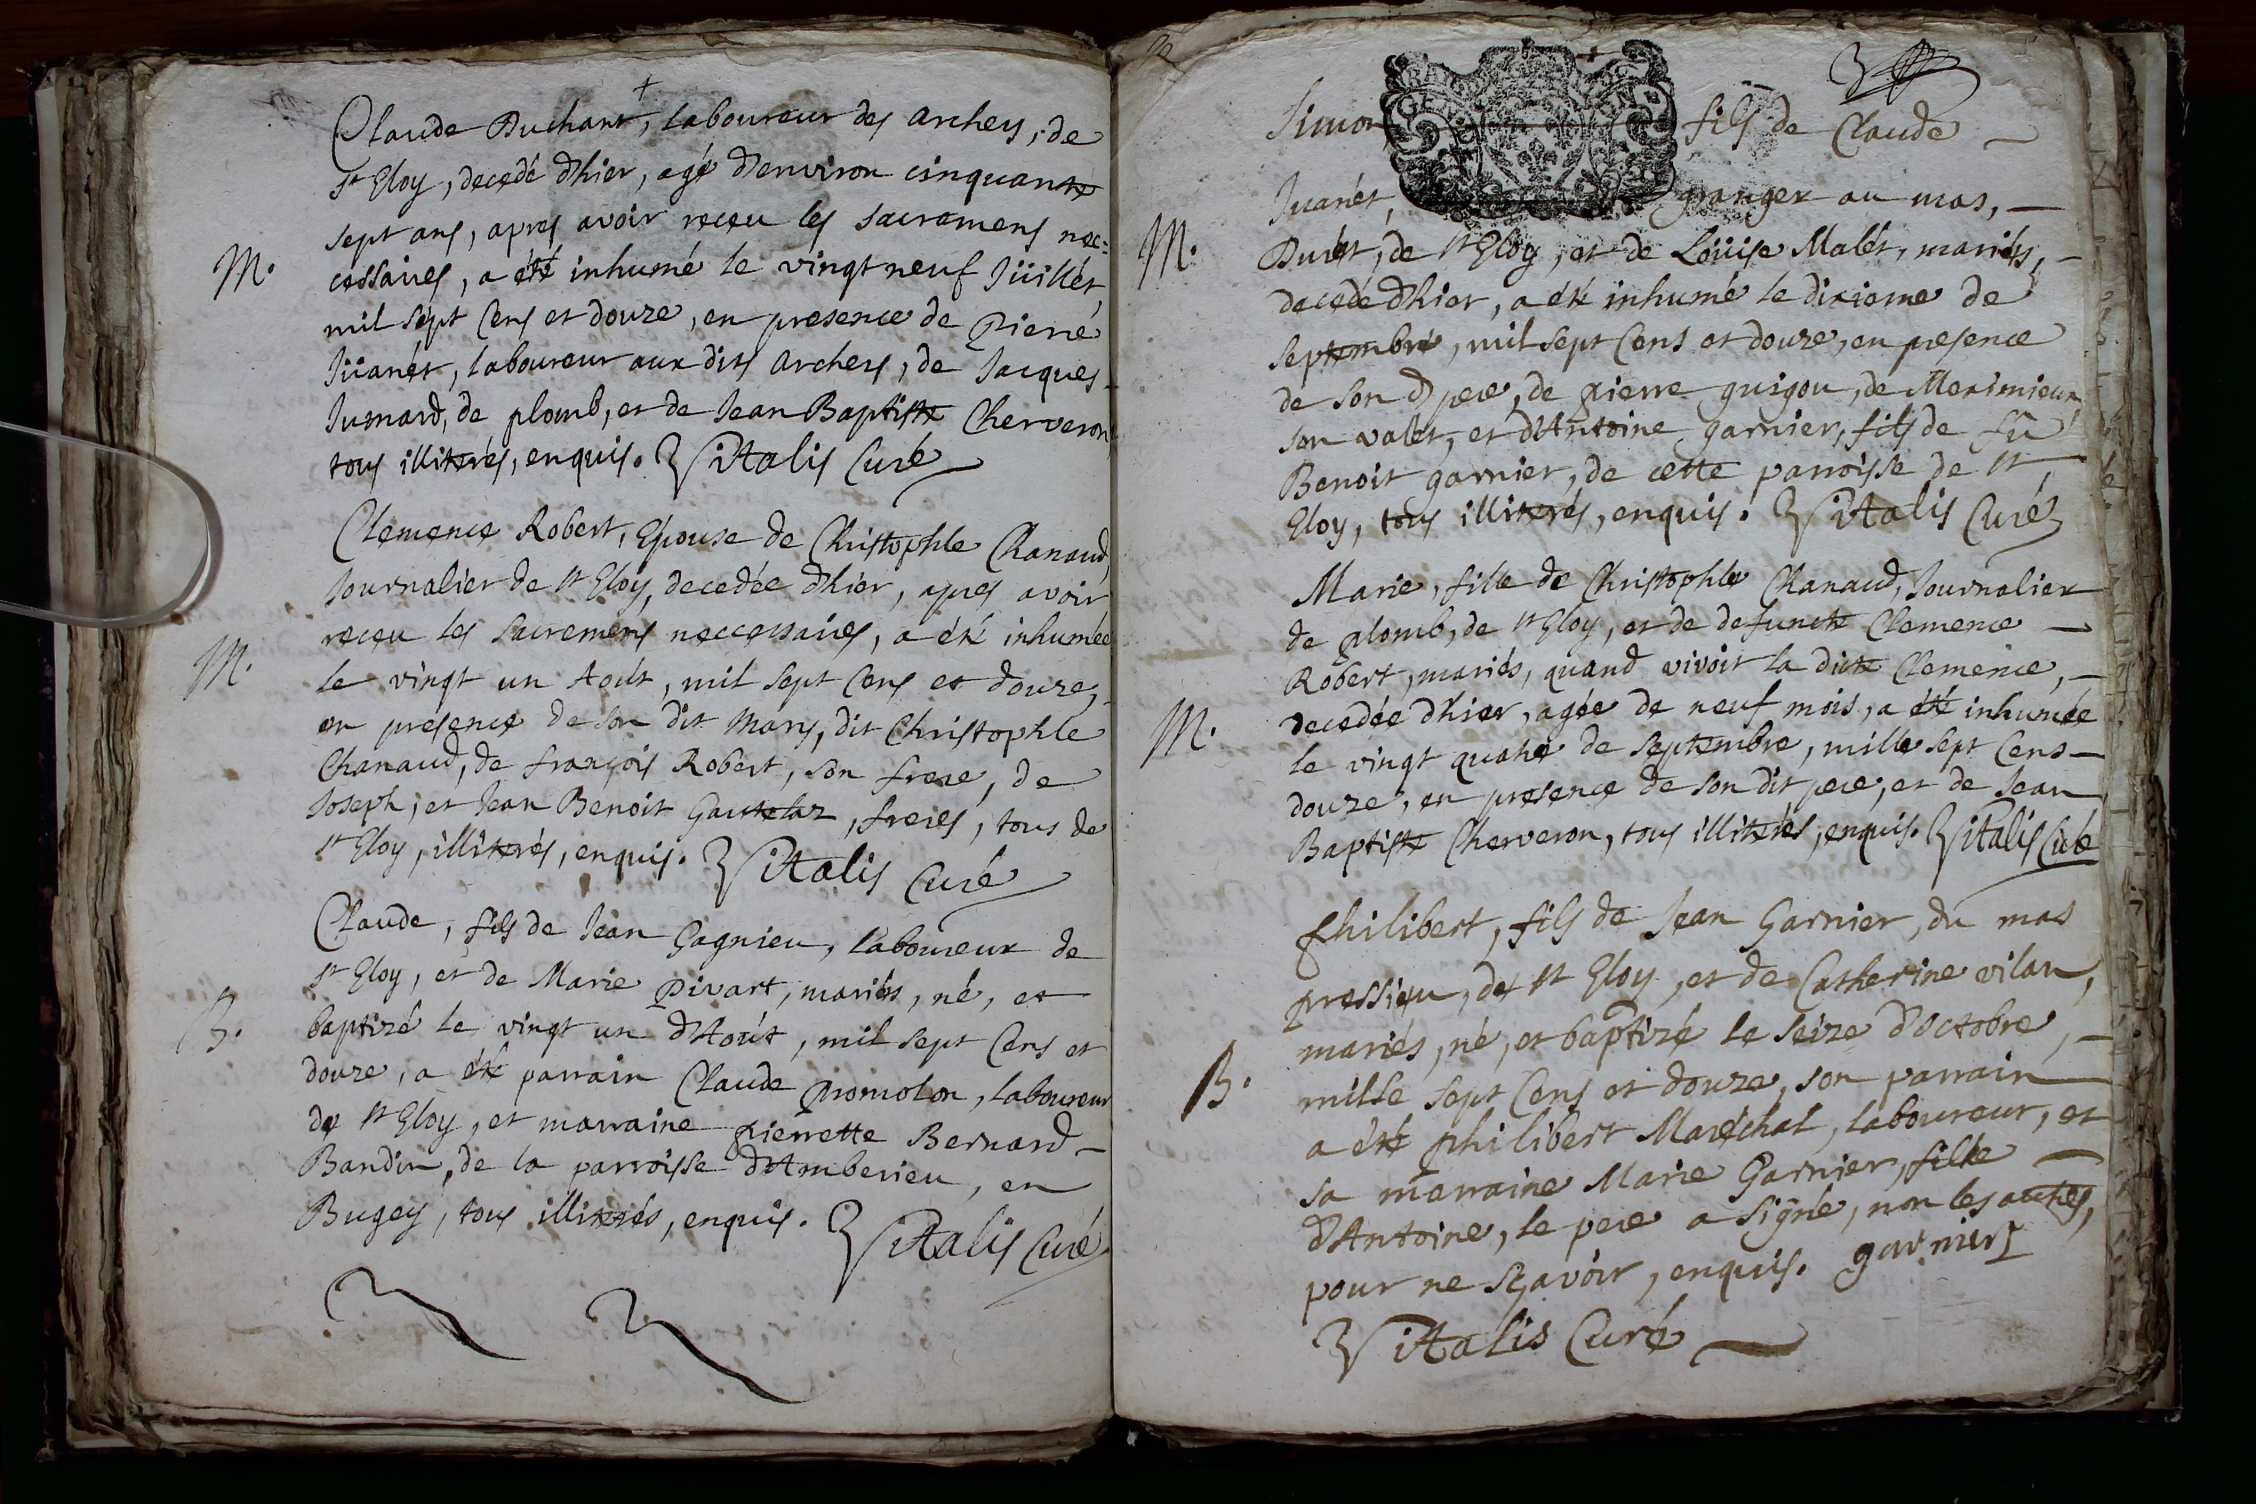 Claude Duchant, laboureur des archers, de
St Eloy, decedé d'hier, agé d'environ cinquante
sept ans, apres avoir receu les sacremens nec=
M. cessaires, a été inhumé le vingt neuf Jüillét
mil sépt cens et douze, en presence de Pierre
Jüanét, laboureur aux dits archers, de Jacques
Jumard, de plomb, et de Jean Baptiste Cherveron,
tous illiterés, enquis. Vitalis Curé
Clemence Robert, Epouse de Christophle Chanaud,
Journalier de St Eloy, decedée d'hier, apres avoir
receu les sacremens neccessaires, a été inhumée
M. le vingt un Août, mil sept cens et douze,
en presence de son dit mary, dit Christophle
Chanaud, de françois Robert, son frere, de
Joseph, et Jean Bénoit Gautelaz, freres, tous de
St Eloy, illiterés, enquis. Vitalis Curé
Claude, fils de Jean Gagnieu, laboureur de
St Eloy, et de Marie Pivart, mariés, né, et
B. baptizé le vingt un d'Août, mil sept cens et
douze, a été parrain Claude Promolon, laboureur
de St Eloy, et marraine pierrette Bernard
Bandin, de la parroisse d'Amberieu, en
Bugey, tous illiterés, enquis.
Vitalis Curé
Simon, fils de Claude
Juanét, granger au mas,
M. Durét, de St Eloy, et de Loüise Malét, mariés,
decedé d'hier, a été inhumé le dixieme de
septembre, mil sept cens et douze, en presence
de son d pere, de pierre guigou, de Meximieux
son valet, et d'Antoine garnier, fils de fû
Benoit garnier, de cette parroisse de St
Eloy, tous illiterés, enquis. Vitalis Curé
Marie, fille de Christophle Chanaud, Journalier
de plomb, de St Eloy, et de defuncte Clemence
Robert, mariés, quand vivoit la dicte Clemence,
M. decedée d'hier, agée de neuf mois, a été inhumée
le vingt quatre de septembre, mille sept cens
douze, en presence de son dit pere, et de Jean
Baptiste Cherveron, tous illiterés, enquis. Vitalis Curé
Philibert, fils de Jean Garnier, du mas
pressieu, de St Eloy, et de Catherine vilan,
mariés, né, et baptizé le seize d'octobre,
B. mille sept cens et douze, son parrain
a été philibert Maréchal, laboureur, et
sa marraine Marie Garnier, fille
d'Antoine, le pere a signé, non les autres,
pour ne sçavoir, enquis. garnier
Vitalis Curé